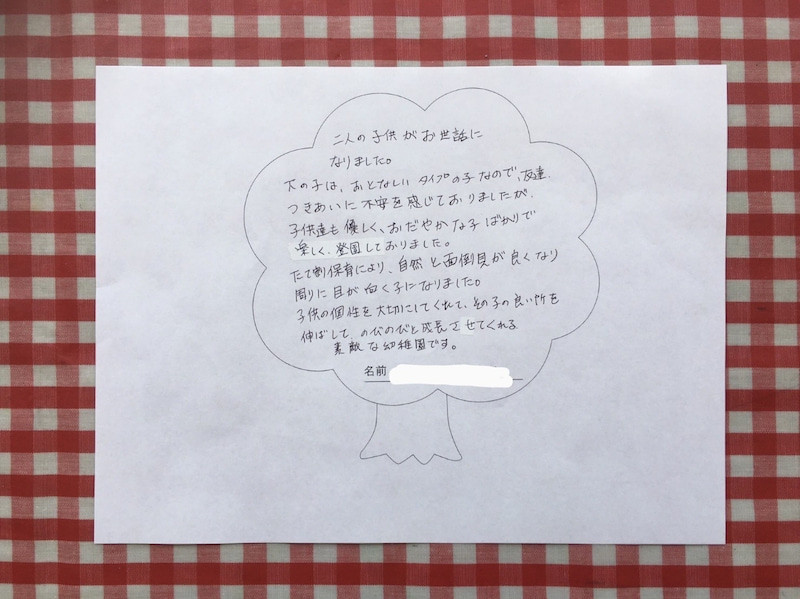 二人の子供がお世話に
なりました。
の子は、おとなしいタイプの子なので、友達
つきあいに不安を感じておりましたが、
子供達も優しく、おだやかな子ばかりで
楽しく、登園しておりました。
たて割保育により、自然と面倒見が良くなり
周りに目が向く子になりました。
子供の個性を大切にしてくれて、その子の良い所を
伸ばして、のびのびと成長させてくれる
素敵な幼稚園です。
名前